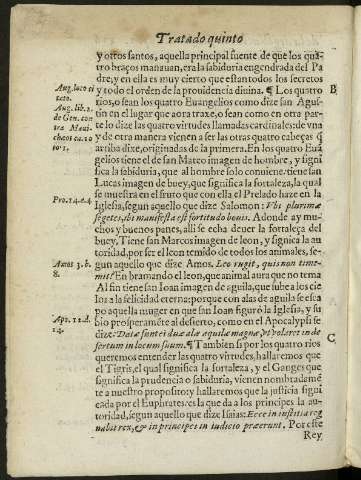 Tratado quinto
y otros santos, aquella principal fuente de que los qua-
tro braços manauan, era la sabiduria engendrada del Pa
dre, y en ella es muy cierto que estan todos los secretos
y todo el orden de la prouidencia diuina. ¶ Los quatro
rios, o sean los quatro Euangelios como dize san Agus-
tin en el lugar que aora traxe, o sean como en otra par-
te lo dize las quatro virtudes llamadas cardinales: de vna
y de otra manera vienen a ser las otras quatro cabeças q̃
arriba dixe, originadas de la primera. En los quatro Euã
gelios tiene el de san Mateo imagen de hombre, y signi
fica la sabiduria, que al hombre solo conuiene: tiene san
Lucas imagen de buey, que significa la fortaleza, la qual
se muestra en el fruto que con ella el Prelado haze en la
Iglesia, segun aquello que dize Salomon: Vbi plurimæ
segetes, ibi manifesta est fortitudo bouis. Adonde ay mu-
chos y buenos panes, alli se echa deuer la fortaleça del
buey, Tiene san Marcos imagen de leon, y signica la au
toridad, por ser el leon temido de todos los animales, se-
gun aquello que dize Amos. Leo rugit, quis non time-
mit? En bramando el leon, que animal aura que no tema
Al fin tiene san Ioan imagen de aguila, que sube a los cie
los a la felicidad eterna: porque con alas de aguila se esca
po aquella muger en que san Ioan figurò la Iglesia, y su
bio prosperamẽte al desierto, como en el Apocalypsi se
dize: Datæ sunt ei duæ alæ aquilæ magnæ, vt volaret in de
sertum in locum suum. ¶ Tambien si por los quatro rios
queremos entender las quatro virtudes, hallaremos que
el Tigris, el qual significa la fortaleza, y el Ganges que
significa la prudencia o sabiduria, vienen nombradamẽ
te a nuestro proposito: y hallaremos que la justicia signi
ficada por el Euphrates: es la que da a los principes la au-
toridad, segun aquello que dize Isaias: Ecce in iustitia reg
nabit rex, & in principes in iudicio præerunt. Por este
Rey
Aug. loco ci
tato.
Aug. lib. 2.
de Gen. con
tra Mani-
cheos ca. 10
to. 1.
Pro. 14. a. 4
Amos 3. b.
8.
Apo. 12. d.
14.
B
C